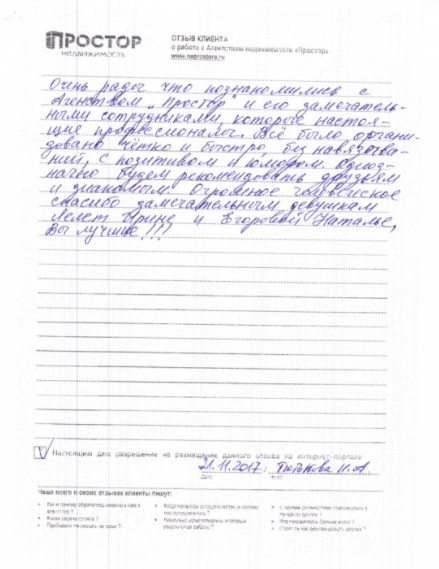 ПРОСТОР
НЕДВИЖИМОСТЬ
ОТЗЫВ КЛИЕНТА
о работе с Агентством недвижимости «Простор»
Очень рады что познакомились с
Агенством „Простор и его замечатель-
ными сотрудниками, которые настоя-
щие профессионалы. Всё было органи-
зовано чётко и быстро, без навязыва-
ний, с позитивом и юмором. Одноз-
начно будем рекомендовать друзьям
и знакомым. Огромное человеческое
спасибо замечательным девушкам
Ирине и Егоровой Наталье,
Вы лучшие!!!
Настоящим даю разрешение на размещение данного отзыва на интернет-портале
21.11.2017г. Н.А.
Дата ФИО
Чаще всего в своих отзывах клиенты пишут: